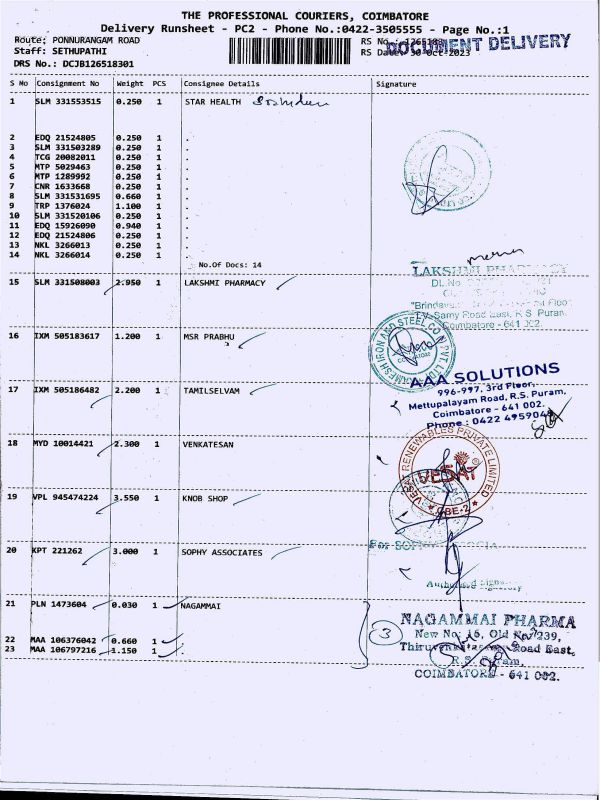 THE PROFESSIONAL COURIERS, COIMBATORE
Delivery Runsheet - PC2 - Phone No.:0422-3505555 - Page No.:1
Route: PONNURANGAM ROAD
RS No.
DOCUMENT DELIVERY
Staff: SETHUPATHI
RS Date: 30-Oct-2023
DRS No.: DCJB126518301
S No Consignment No Weight PCS Consignee Details Signature
1 SLM 331553515 0.250 1 STAR HEALTH
2 EDQ 21524805 0.250 1 .
3 SLM 331503289 0.250 1 .
4 TCG 20082011 0.250 1 .
5 MTP 5029463 0.250 1 .
6 MTP 1289992 0.250 1 .
7 CNR 1633668 0.250 1 .
8 SLM 331531695 0.660 1 .
9 TRP 1376024 1.100 1 .
10 SLM 331520106 0.250 1 .
11 EDQ 15926090 0.940 1 .
12 EDQ 21524806 0.250 1 .
13 NKL 3266013 0.250 1 .
14 NKL 3266014 0.250 1 .
No.Of Docs: 14
15 SLM 331508003 2.950 1 LAKSHMI PHARMACY
LAKSHMI PHARMACY
DL.No
"Brindava
Floor
T.V. Samy Road East, R.S. Puram,
Coimbatore - 641 002.
16 IXM 505183617 1.200 1 MSR PRABHU
IRON AND STEEL CO
PVT. LTD
AAA SOLUTIONS
996-997, 3rd Floor,
Mettupalayam Road, R.S. Puram,
Coimbatore - 641 002.
Phone : 0422 4959049
17 IXM 505186482 2.200 1 TAMILSELVAM
18 MYD 10014421 2.300 1 VENKATESAN
VESAT RENEWABLES PRIVATE LIMITED
VESAT
CBE-2
19 VPL 945474224 3.550 1 KNOB SHOP
For
20 KPT 221262 3.000 1 SOPHY ASSOCIATES
Authorised Signatory
21 PLN 1473604 0.030 1 NAGAMMAI
22 MAA 106376042 0.660 1 .
23 MAA 106797216 1.150 1 .
3
NAGAMMAI PHARMA
New No: 15, Old No: 239,
Road East,
R.S. Puram,
COIMBATORE - 641 002.